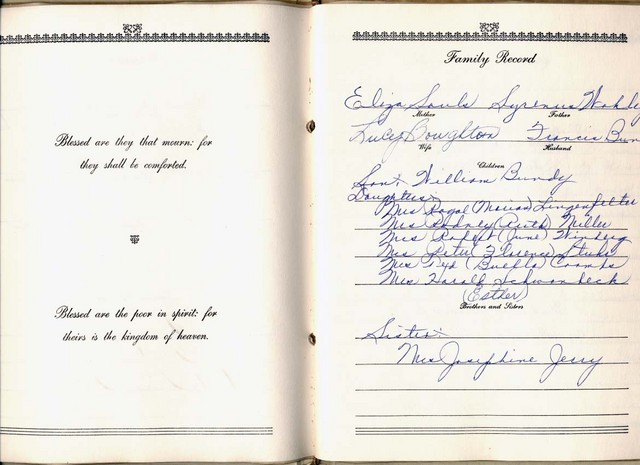 Blessed are they that mourn: for
they shall be comforted.
Blessed are the poor in spirit: for
theirs is the kingdom of heaven.
Family Record
Eliza Souls Syrenus
Mother Father
Lucy Doughton Francis Bun
Wife Husband
Children
Son: William Bundy
Daughters:
Mrs Royal (Marian) Lingenfelter
Mrs Rodney (Ruth) Miller
Mrs Robert (June) Wineberg
Mrs Peter (Florence)
Mrs Ted (Buella) Coombs
Mrs Harold Schwanbeck
(Esther)
Brothers and Sisters
Sister:
Mrs Josephine Jerry